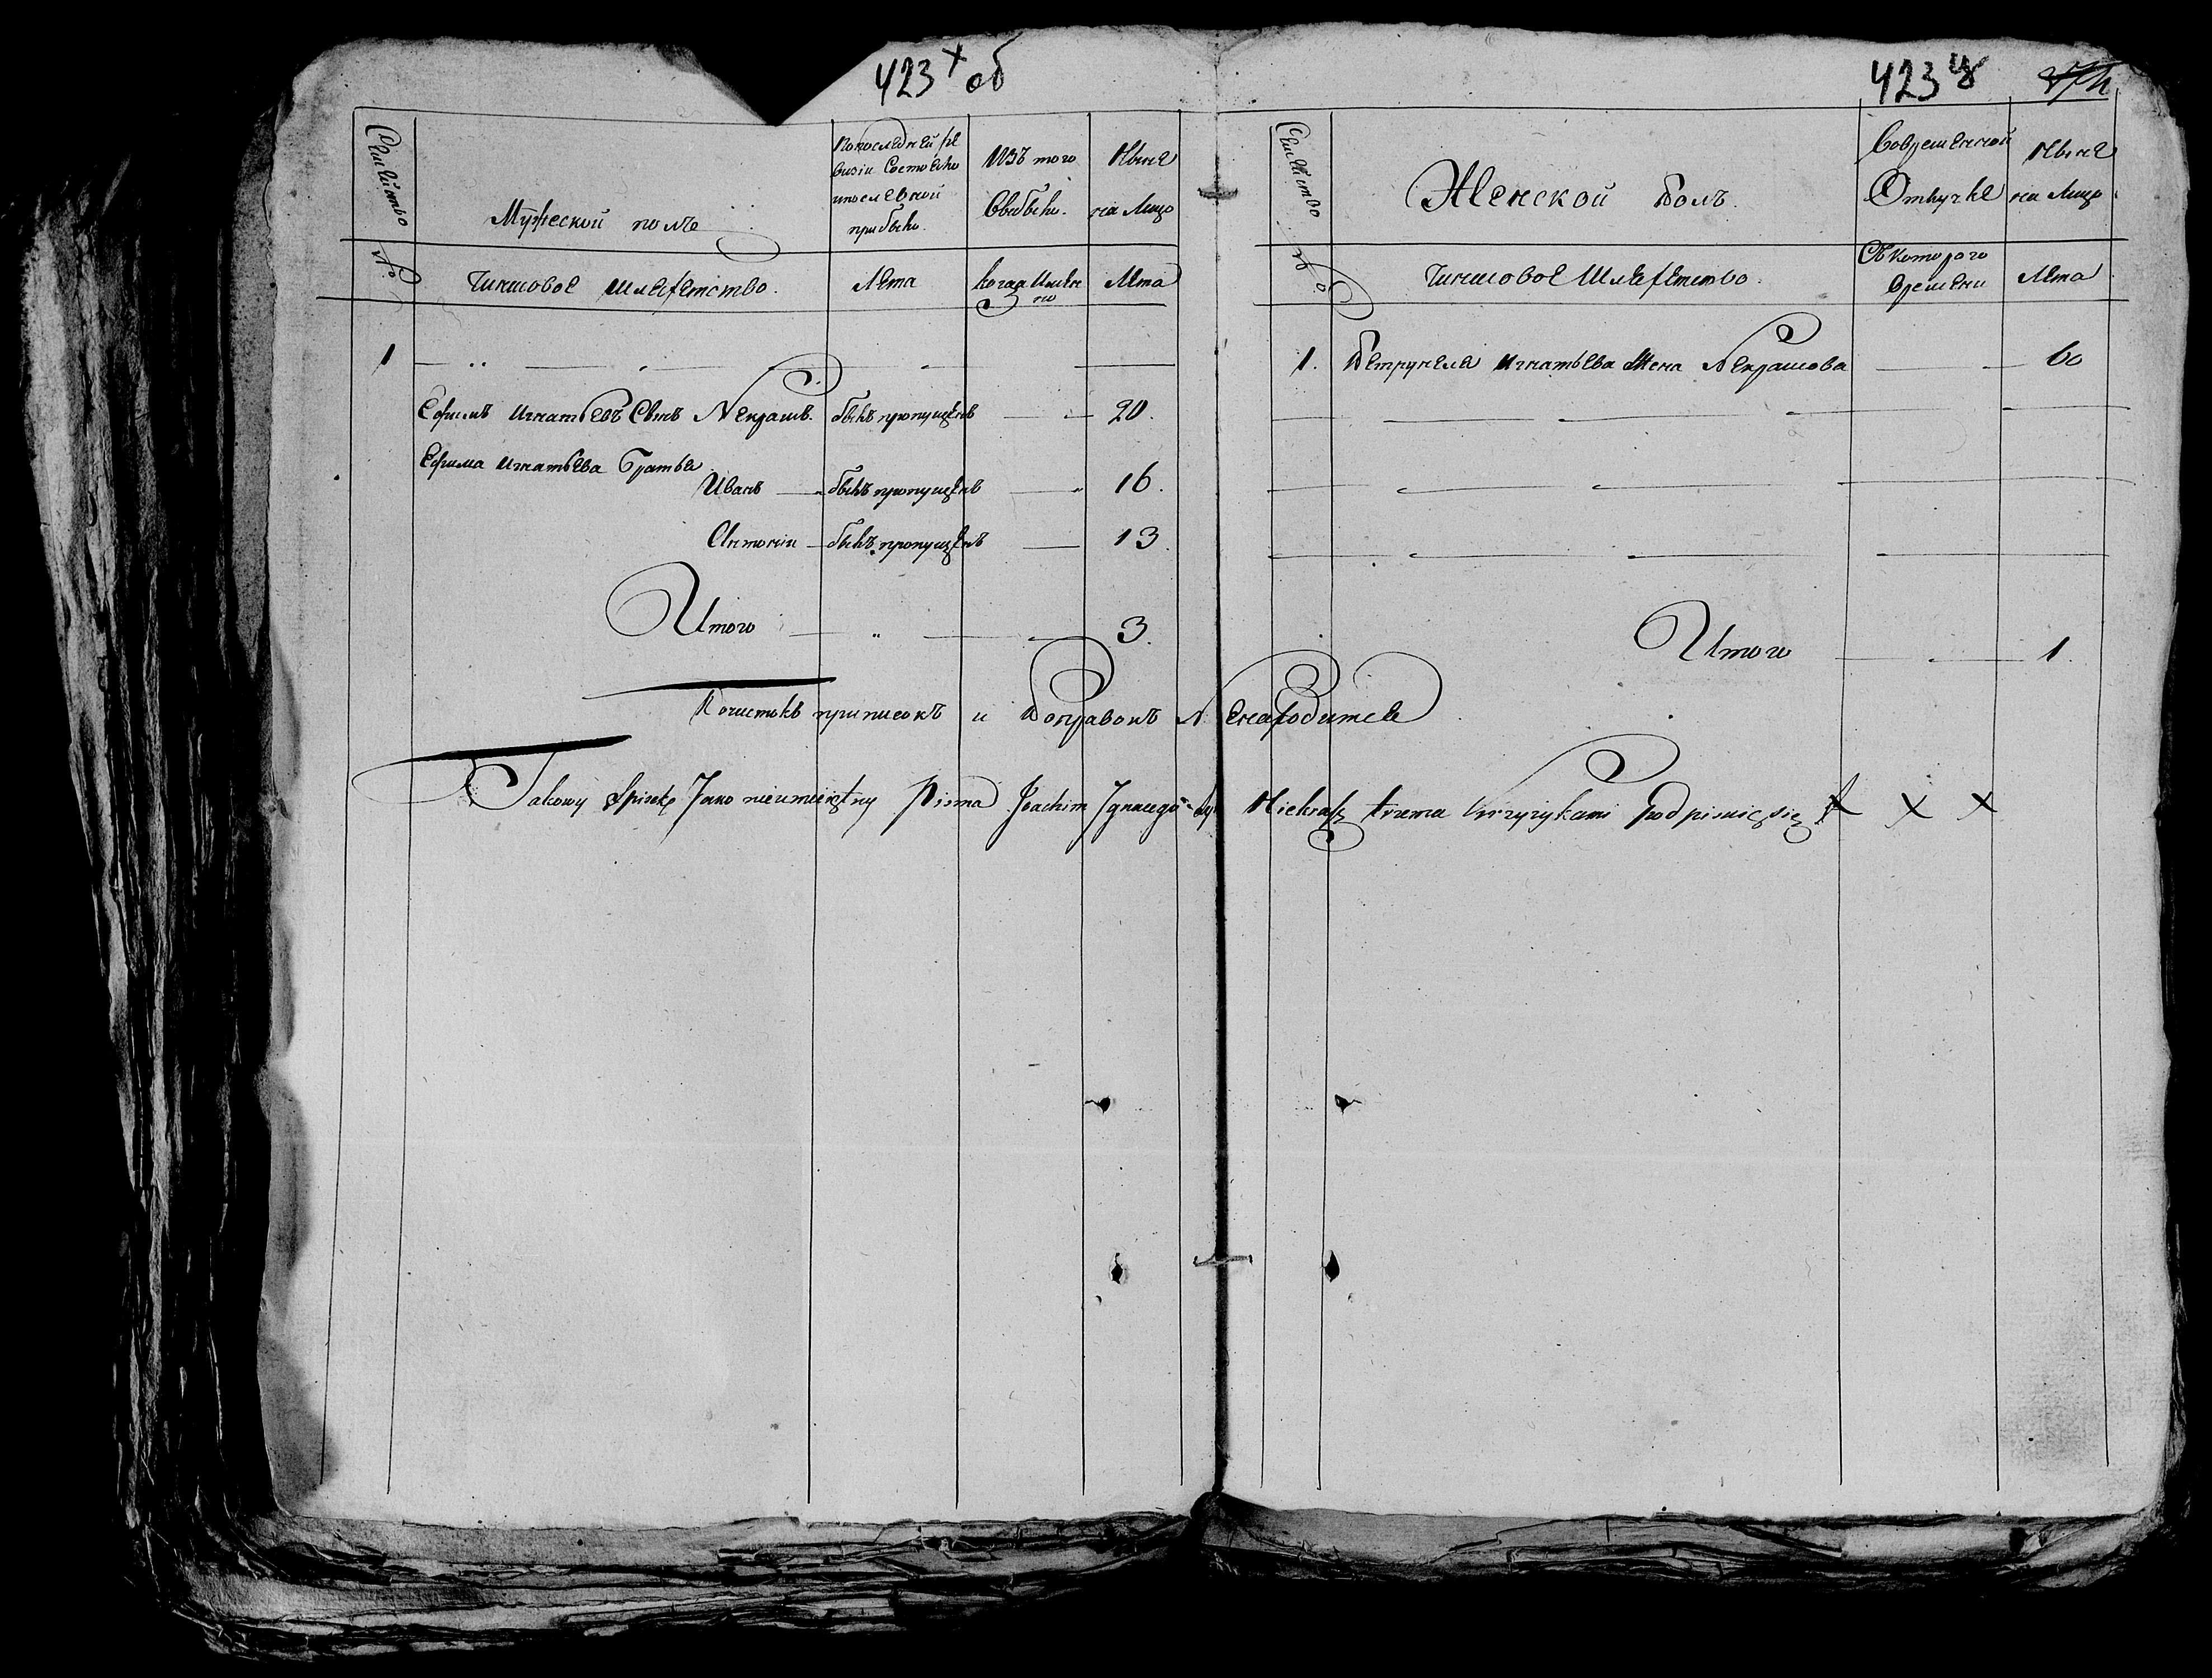 423х об
423ц
Семейство
Мужеской полъ
По последней ре
визіи Состояло
и после оной
прибыло.
Изъ того
Выбыло.
Ныне
на Лицо
№
Чиншовое шляхетство.
Лета
когда Именно
Лета
1
Ефимъ Игнатьевъ Сынъ Некрашъ. былъ пропущенъ 20.
Ефима Игнатьева Братья
Иванъ былъ пропущенъ 16.
Антоній былъ пропущенъ 13.
Итого 3.
Семейство
Женской полъ.
Во временной
Отлучке
Ныне
на Лицо
№
Чиншовое Шляхетство.
Съ которого
времени
Лета
1. Петрунеля Игнатьева Жена Некрашова 60
Итого 1.
Почистокъ приписокъ и Поправокъ Ненаходится
Takowy Spisek Jako nieumieiętny Pisma Joachim Ignacego syn Niekrasz trzema krzyżykami podpisuię się X X X